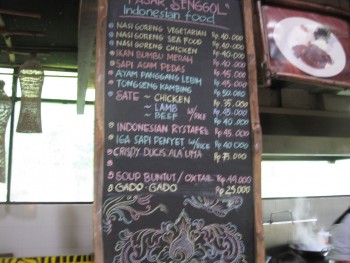 PASAR SENGGOL
Indonesian food
NASI GORENG VEGETARIAN Rp 40.000
NASI GORENG SEA FOOD Rp 40.000
NASI GORENG CHICKEN Rp 40.000
IKAN BUMBU MERAH Rp 40.000
SAPI ASAM PEDAS Rp 45.000
AYAM PANGGANG LEBIH Rp 45.000
TONGSENG KAMBING Rp 50.000
SATE ~ CHICKEN Rp 35.000
~ LAMB Rp 45.000
~ BEEF Rp 40.000
INDONESIAN RYSTAFEL Rp 45.000
IGA SAPI PENYET Rp 40.000
CRISPY DUCK ALA'UMA Rp 75.000
SOUP BUNTUT / OXTAIL Rp 44.000
GADO GADO Rp 25.000